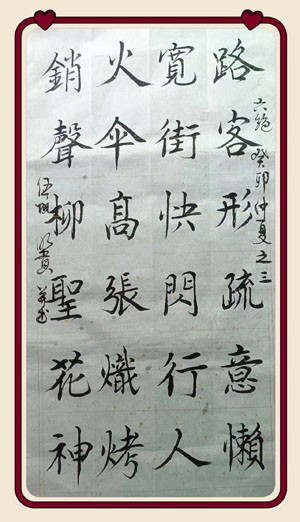 六絕 癸卯仲夏之三
路客形疏意懶
寬街快閃行人
火傘髙張熾烤
銷聲柳聖花神